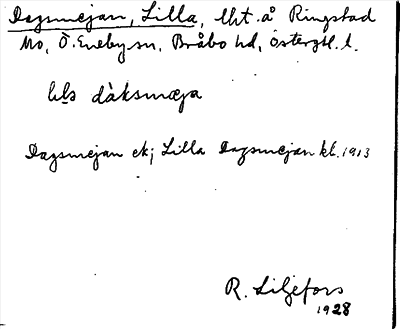 Dagsmejan, Lilla, lht. å Ringstad
Mo, Ö. Eneby sn, Bråbo hd, Östergtl. l.
lıls dàksmæja
Dagsmejan ek; Lilla Dagsmejan kt. 1913
R. Liljefors
1928